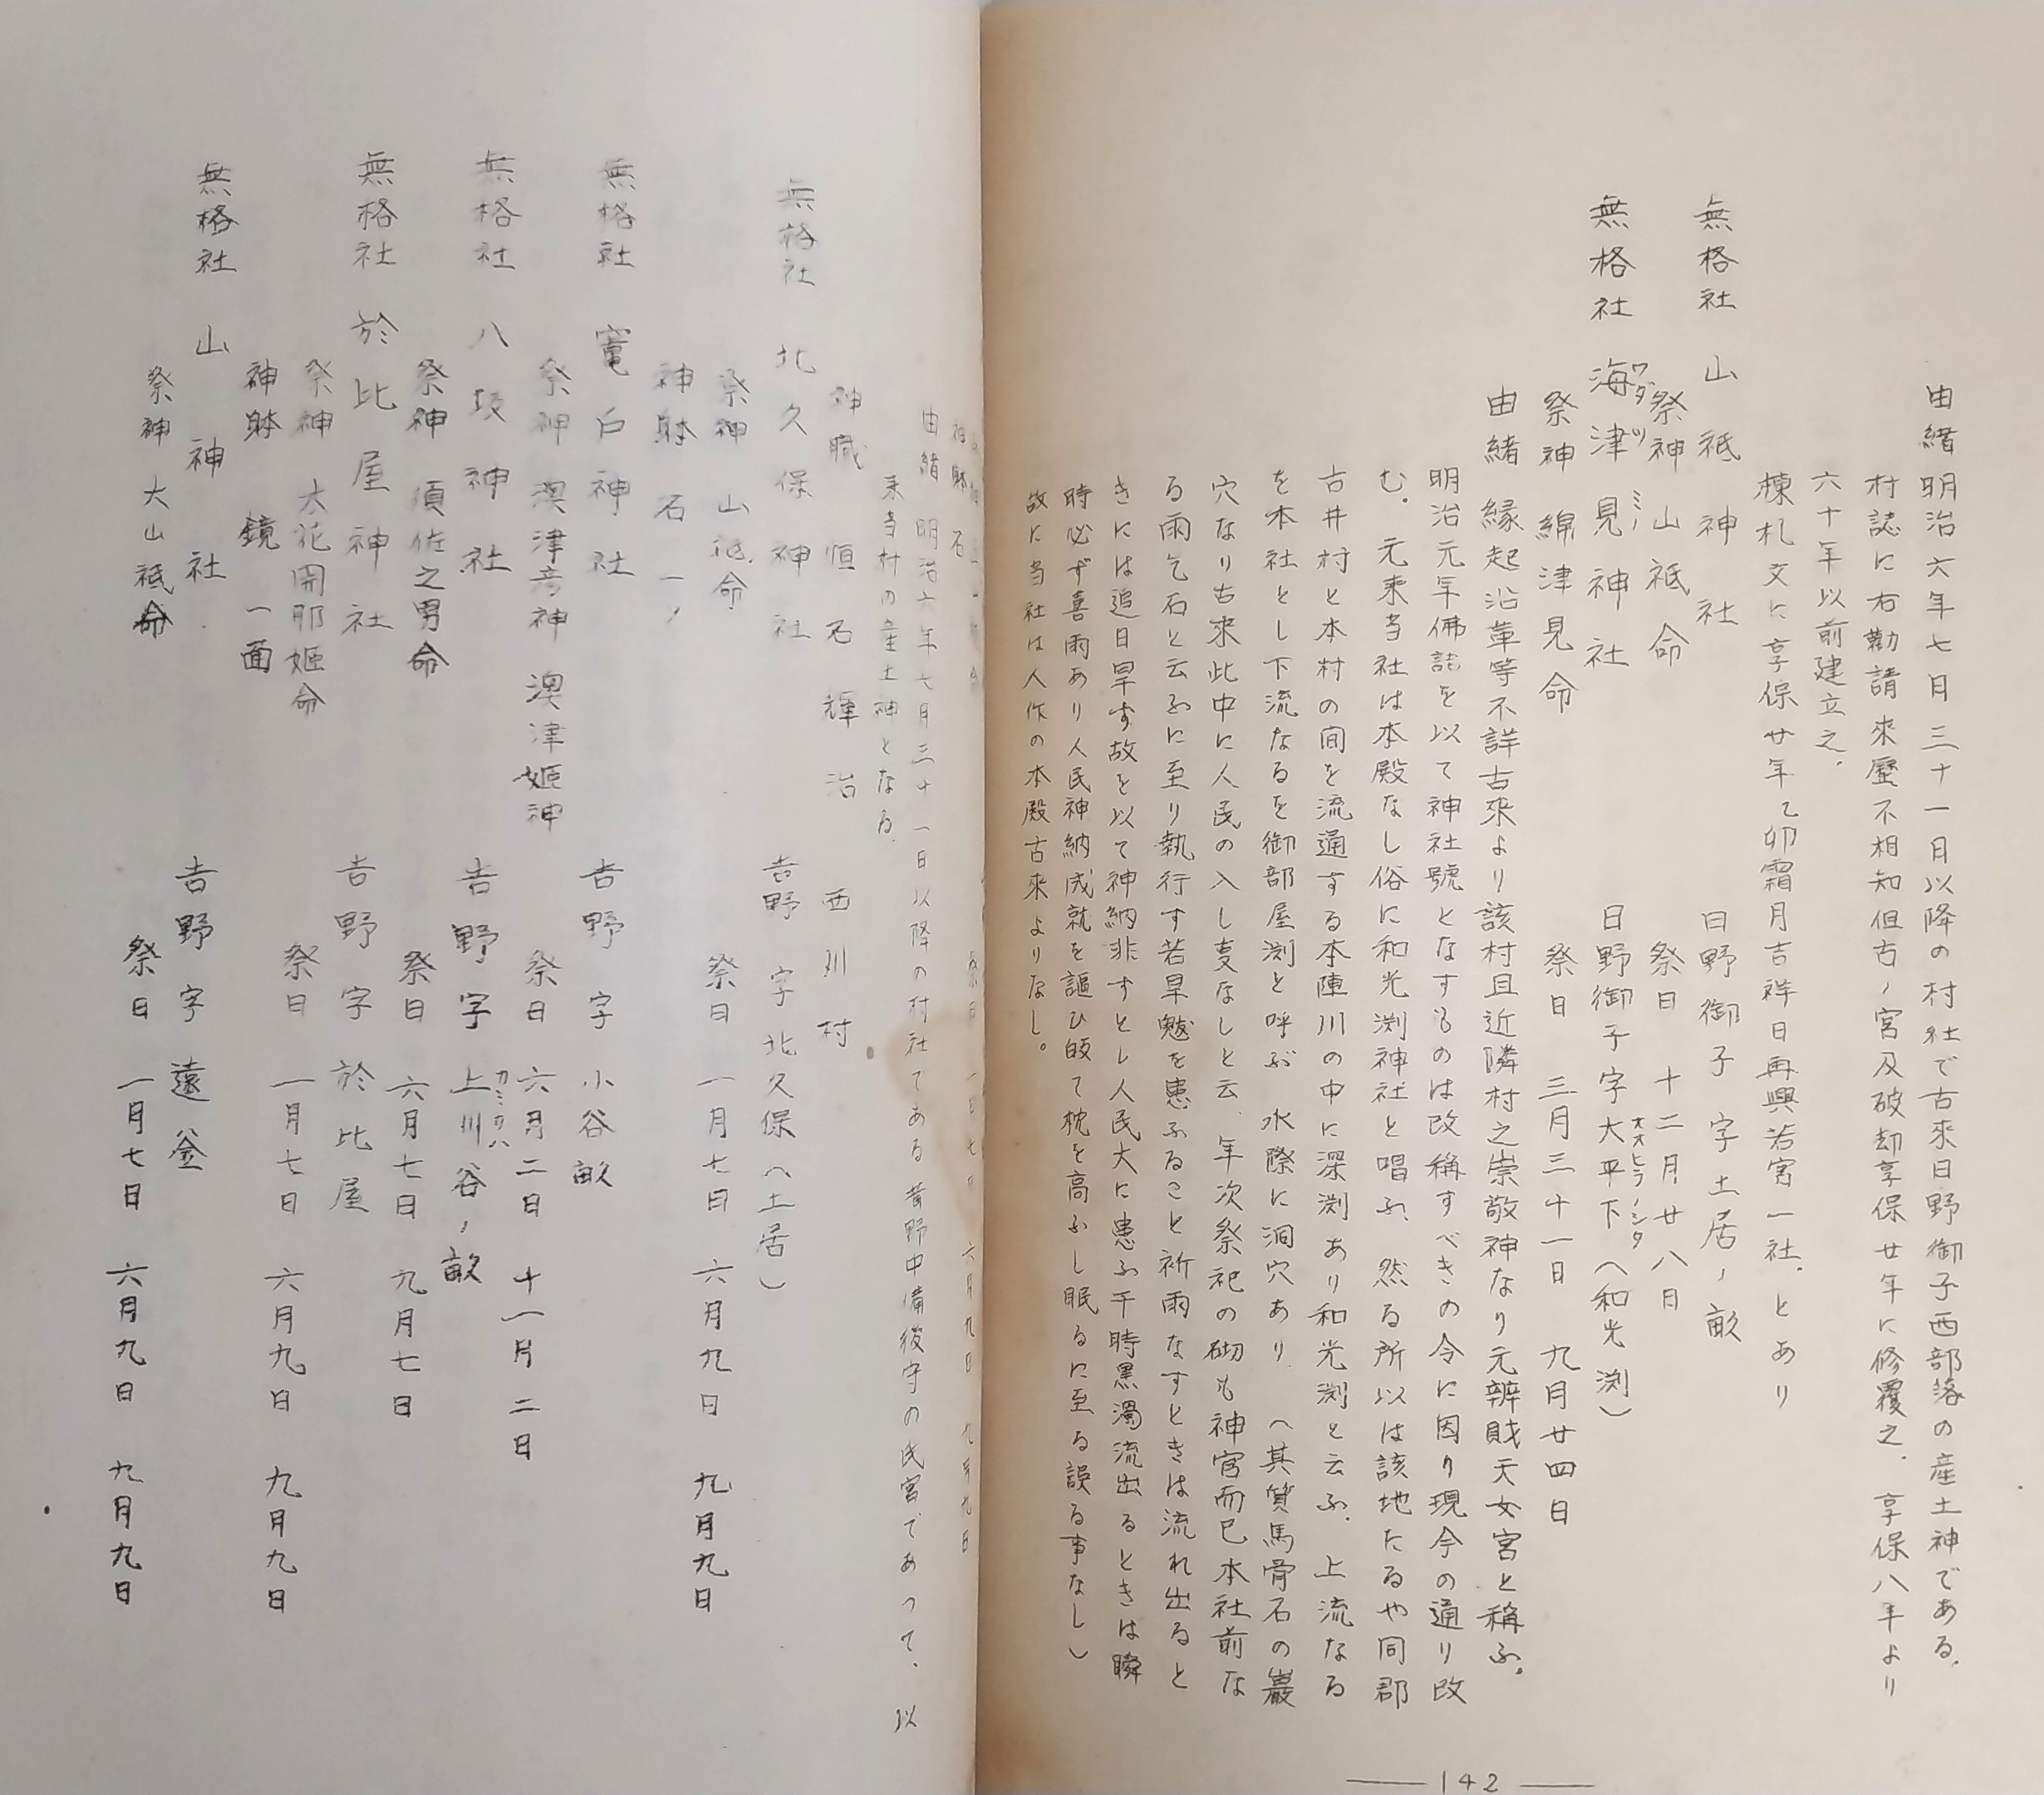 由緒 明治六年七月三十一月以降の村社で古来日野御子西部落の産土神である.
村誌に右勧請來歴不相知但古ノ宮及破却享保廿年に修覆之. 享保八年より
六十年以前建立之.
棟札文に享保廿年乙卯霜月吉祥日再興若宮一社. とあり
無格社 山祇神社 日野御子 字土居ノ畝
祭神 山祇命 祭日 十二月廿八日
無格社 海津見神社 日野御子字大平下(和光渕)
ワタツミノ オオヒラノシタ
祭神 綿津見命 祭日 三月三十一日 九月廿四日
由緒 縁起沿革等不詳古来より該村且近隣村之崇敬神なり元辨賊天女宮と稱ふ。
明治元年佛語を以て神社號となすものは改稱すべきの令に因り現今の通り改
む. 元来当社は本殿なし俗に和光渕神社と唱ふ. 然る所以は該地たるや同郡
古井村と本村の間を流通する本陣川の中に深渕あり和光渕と云ふ. 上流なる
を本社とし下流なるを御部屋渕と呼ぶ 水際に洞穴あり. (其質馬骨石の巖
穴なり古来此中に人民の入し支なしと云. 年次祭祀の砌も神官而已本社前な
る雨乞石と云ふに至り執行す若旱魃を患ふること祈雨なすときは流れ出ると
きには追日旱す故を以て神納非すとし人民大に患ふ干時黒濁流出るときは瞬
時必ず喜雨あり人民神納成就を謳ひ皷て枕を高ふし眠るに至る誤る事なし)
故に当社は人作の本殿古来よりなし。
142
神躰 石 祭日 一月七日 六月九日 九月九日
由緒 明治六年七月三十一日以降の村社てある 昔野中備後守の氏宮であって. 以
来当村の産土神となる.
神職 恒石輝治 西川村
無格社 北久保神社 吉野 字北久保(土居)
祭神 山祗命 祭日 一月七日 六月九日 九月九日
神躰 石一ノ
無格社 竃戸神社 吉野 字小谷畝
祭神 澳津彦神 澳津姫神 祭日 六月二日 十一月二日
無格社 八坂神社 吉野 字上川谷ノ畝
カミカハ
祭神 須佐之男命 祭日 六月七日 九月七日
無格社 於比屋神社 吉野 字於比屋
祭神 木花開耶姫命 祭日 一月七日 六月九日 九月九日
神躰 鏡一面
無格社 山神社 吉野 字遠釜
祭神 大山祗命 祭日 一月七日 六月九日 九月九日